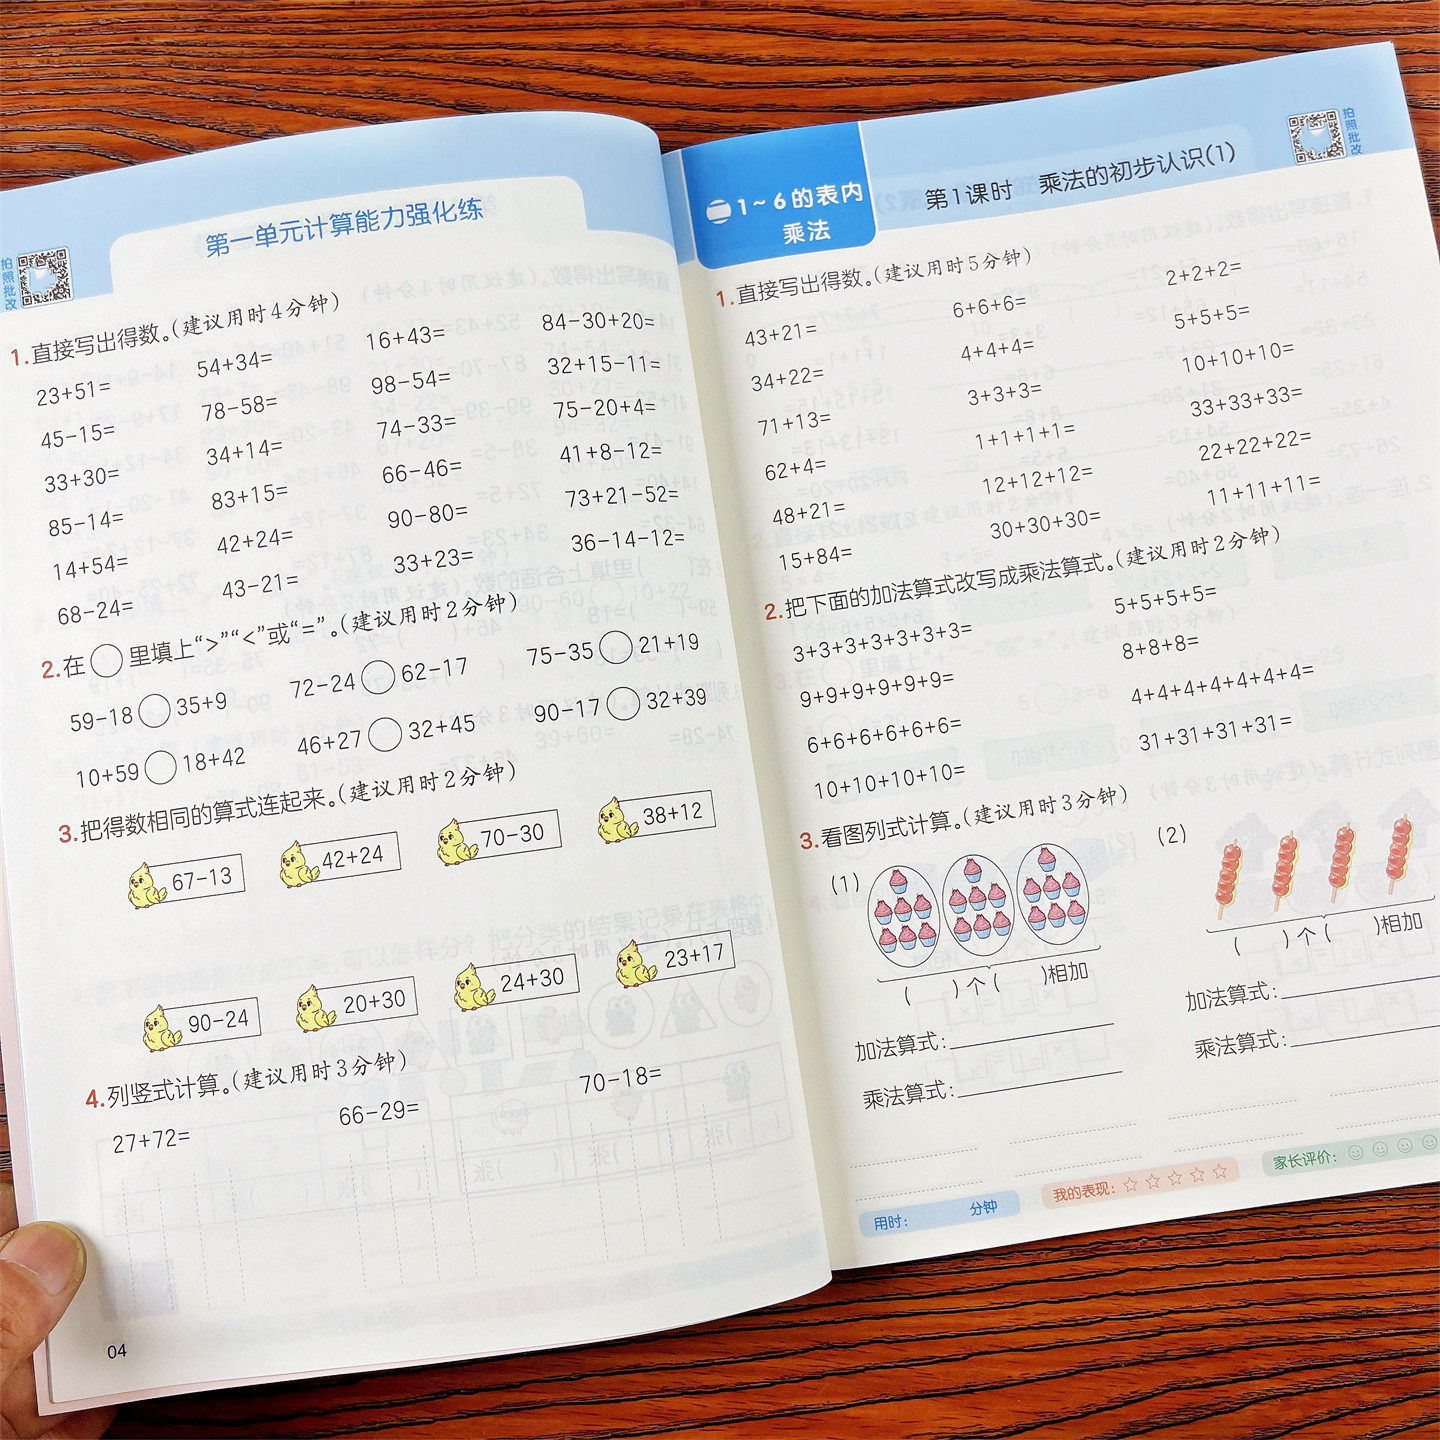 拍照批改
第一单元计算能力强化练
1.直接写出得数。(建议用时4分钟)
23+51= 54+34= 16+43= 84-30+20=
45-15= 78-58= 98-54= 32+15-11=
33+30= 34+14= 74-33= 75-20+4=
85-14= 83+15= 66-46= 41+8-12=
14+54= 42+24= 90-80= 73+21-52=
68-24= 43-21= 33+23= 36-14-12=
2.在○里填上“>”“<”或“=”。(建议用时2分钟)
59-18○35+9 72-24○62-17 75-35○21+19
10+59○18+42 46+27○32+45 90-17○32+39
3.把得数相同的算式连起来。(建议用时2分钟)
67-13 42+24 70-30 38+12
90-24 20+30 24+30 23+17
4.列竖式计算。(建议用时3分钟)
27+72= 66-29= 70-18=
04
二 1~6的表内
乘法
第1课时 乘法的初步认识(1)
拍照批改
1.直接写出得数。(建议用时5分钟)
43+21= 6+6+6= 2+2+2=
34+22= 4+4+4= 5+5+5=
71+13= 3+3+3= 10+10+10=
62+4= 1+1+1+1= 33+33+33=
48+21= 12+12+12= 22+22+22=
15+84= 30+30+30= 11+11+11=
2.把下面的加法算式改写成乘法算式。(建议用时2分钟)
3+3+3+3+3+3+3= 5+5+5+5=
9+9+9+9+9+9= 8+8+8=
6+6+6+6+6+6= 4+4+4+4+4+4+4=
10+10+10+10= 31+31+31+31=
3.看图列式计算。(建议用时3分钟)
(1) (2)
( )个( )相加 ( )个( )相加
加法算式: 加法算式:
乘法算式: 乘法算式:
用时: 分钟 我的表现:☆☆☆☆☆ 家长评价: